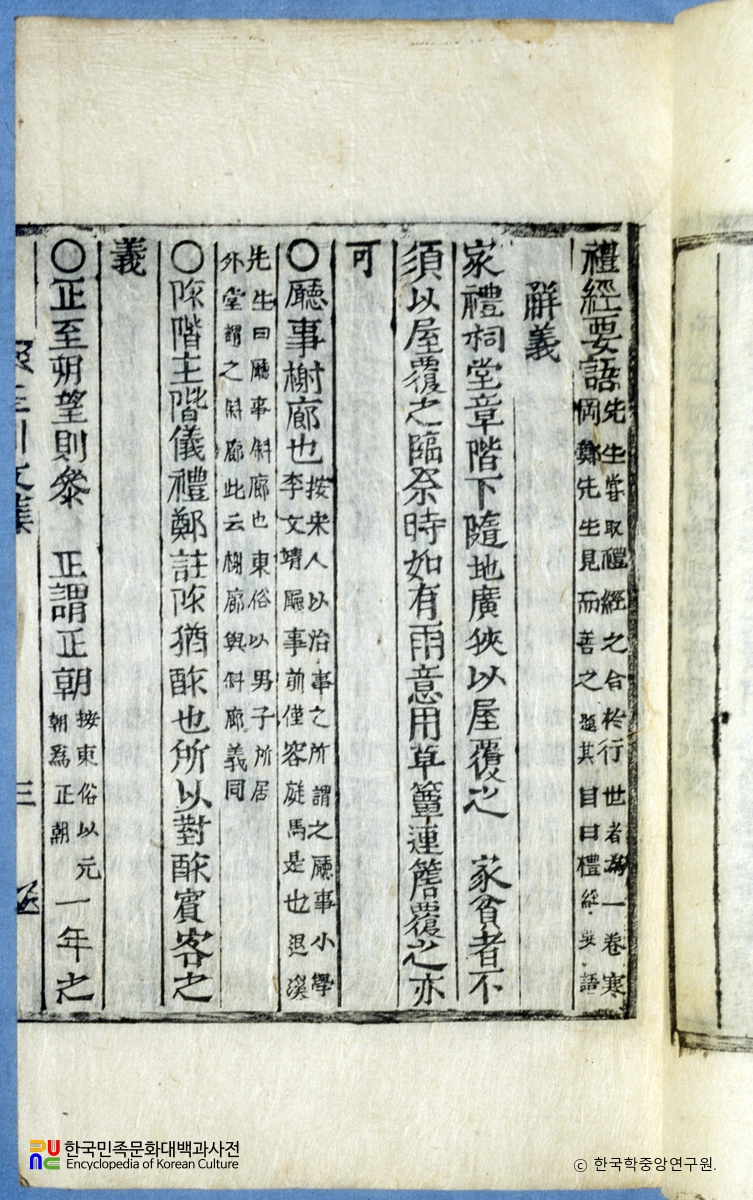 禮經要語 先生嘗取禮經之合於行世者為一卷寒
岡鄭先生見而善之題其目曰禮經要語
辭義
家禮祠堂章階下隨地廣狹以屋覆之 家貧者不
須以屋覆之臨祭時如有雨意用草簟連簷覆之亦
可
〇廳事榭廊也 按宋人以治事之所謂之廳事小學
李文靖廳事前僅容旋馬是也退溪
先生曰廳事斜廊也東俗以男子所居
外堂謂之斜廊此云榭廊與斜廊義同
〇阼階主階儀禮鄭註阼猶酢也所以對酢賓客之
義
〇正至朔望則參 正謂正朝 按東俗以元
朝為正朝
一年之
三
한국민족문화대백과사전
Encyclopedia of Korean Culture
ⓒ 한국학중앙연구원.